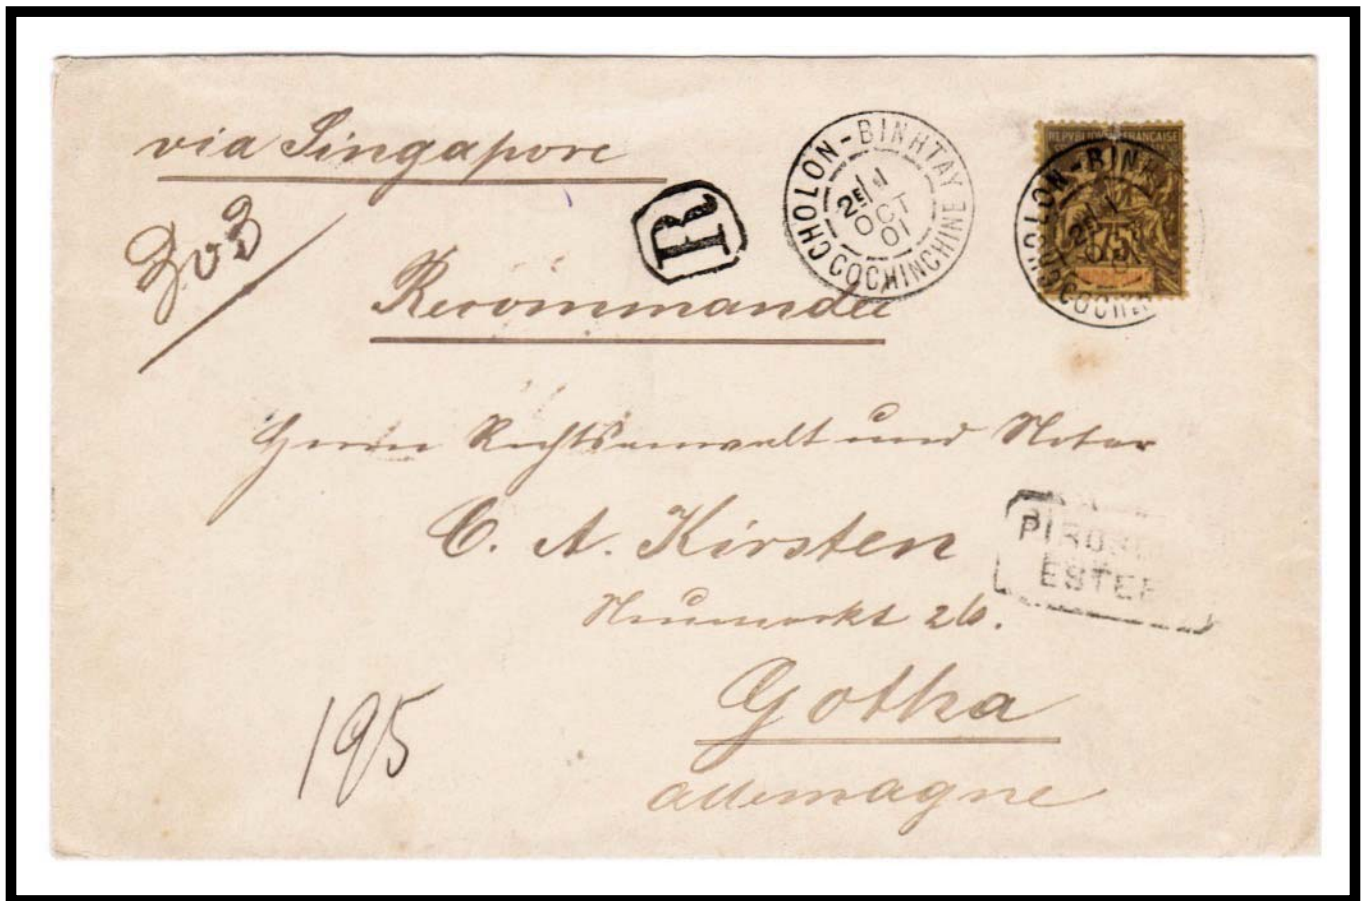 via Singapore
203
R
CHOLON-BINHTAY
2E
OCT
01
COCHINCHINE
REPUBLIQUE FRANÇAISE
CHOLON-BINH
2E
75
COCHIN
Recommandée
Herrn Rechtsanwalt und Notar
C. A. Kirsten
PIROSC
ESTER
Neumarkt 26.
Gotha
allemagne
195